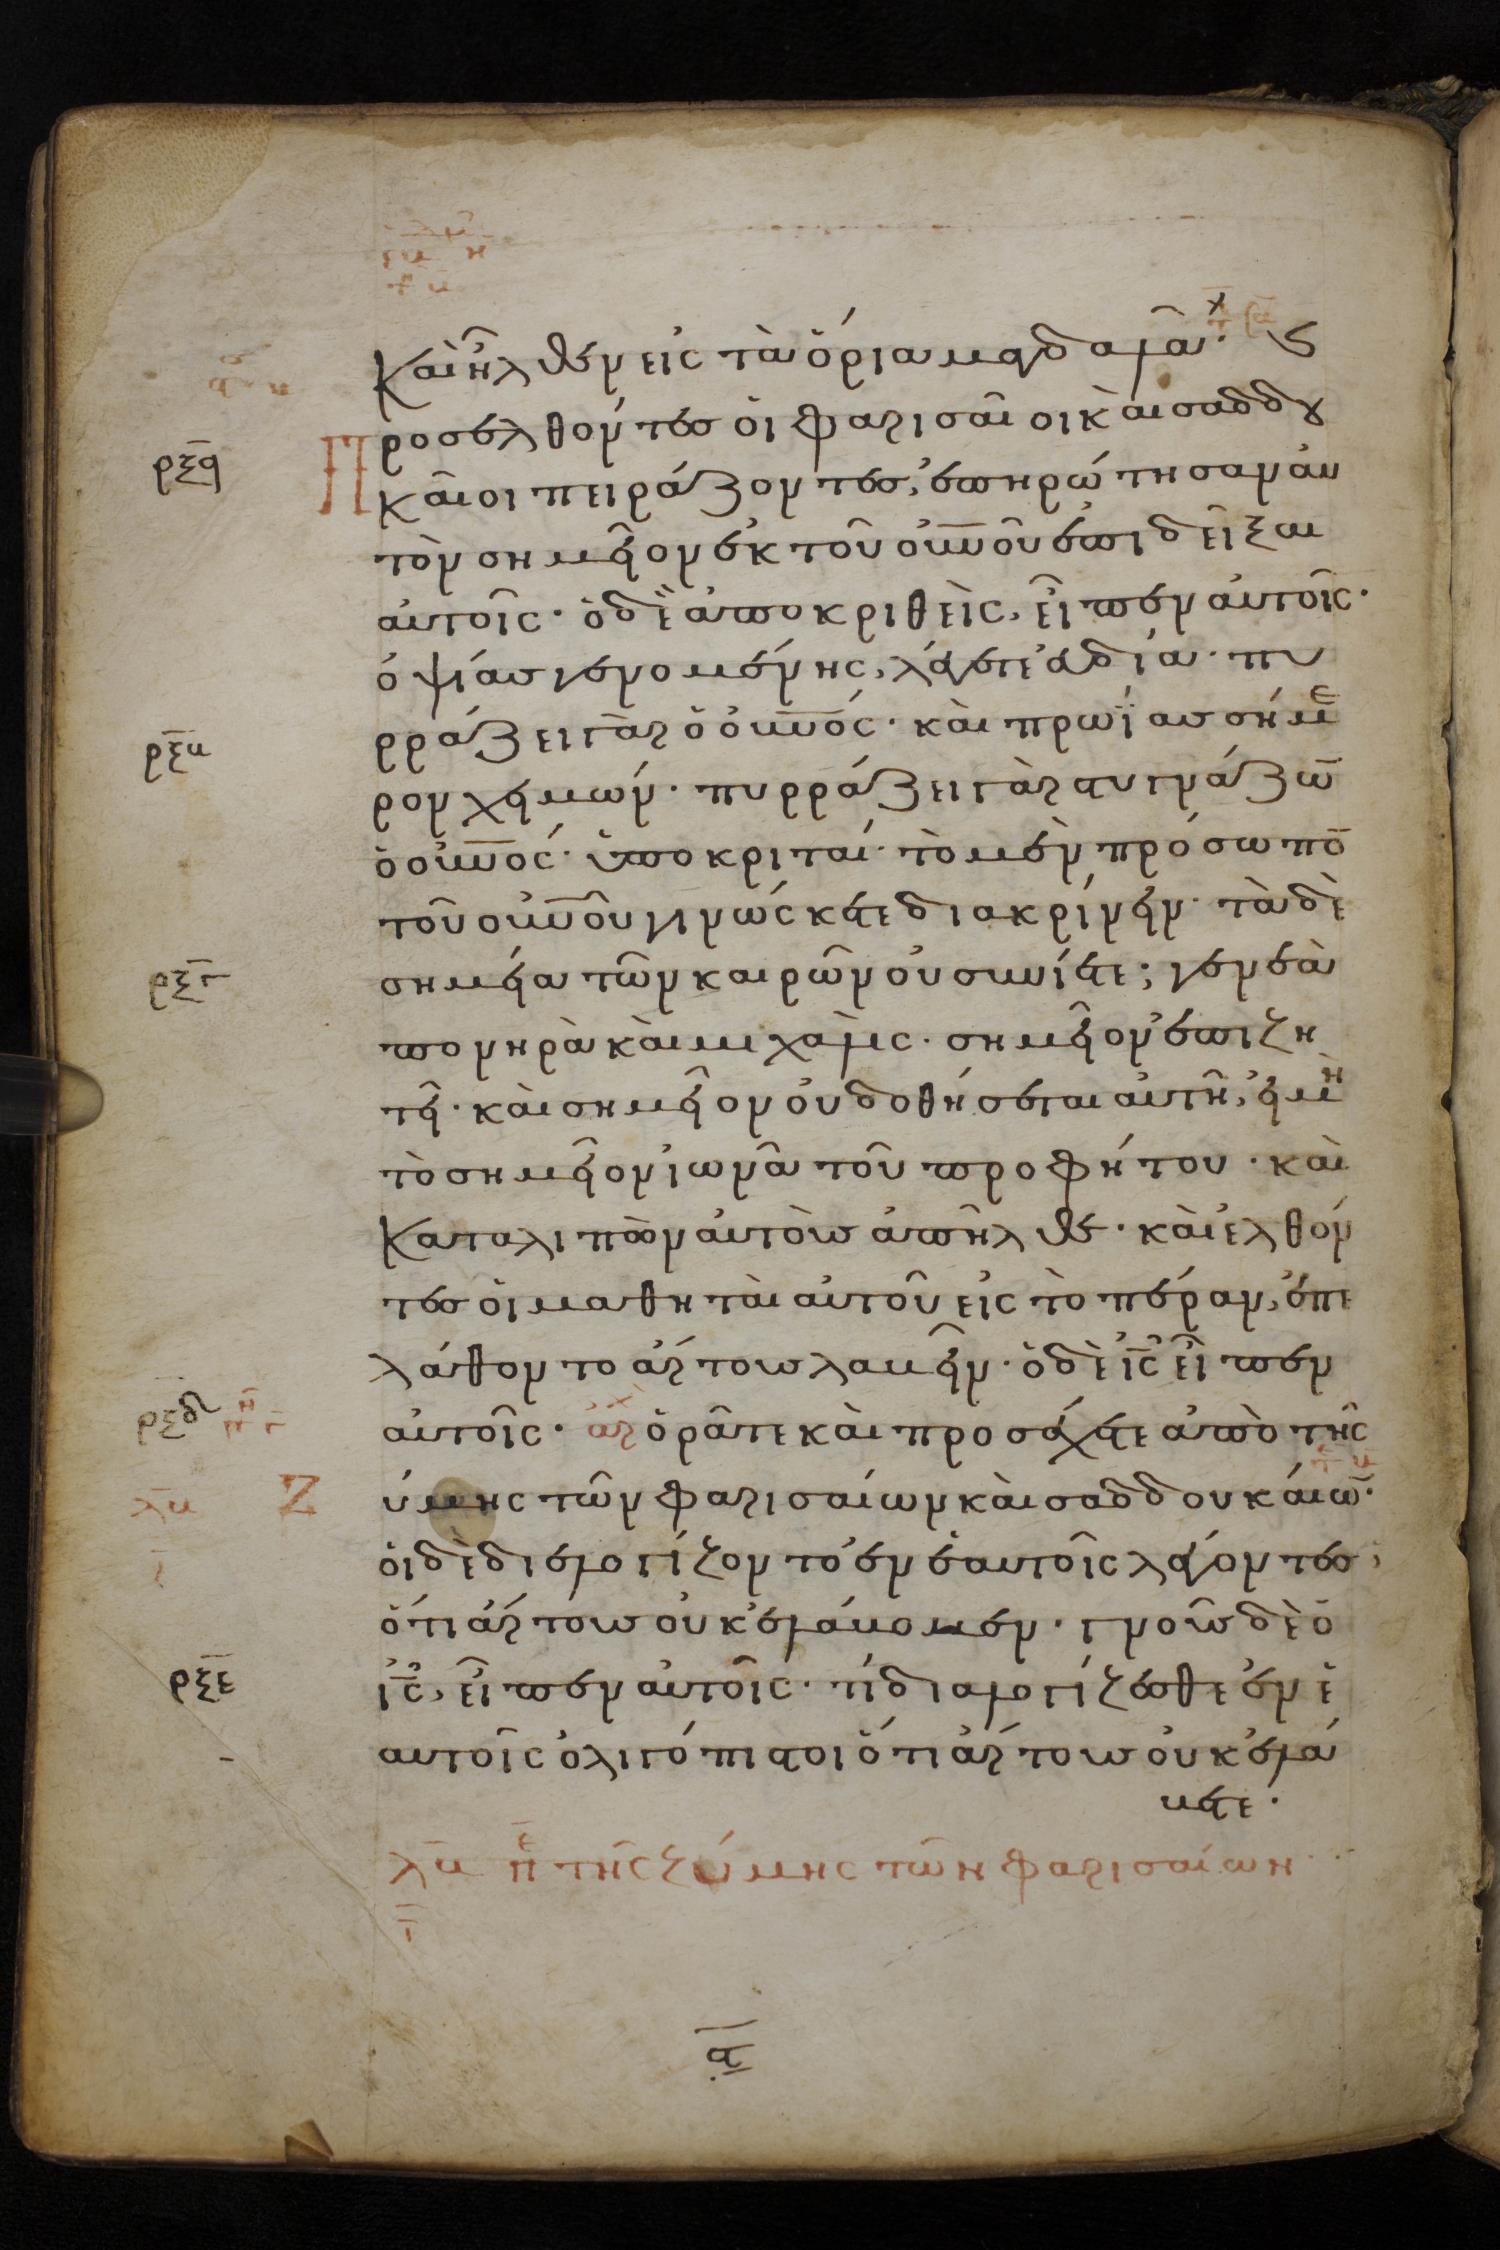 καὶ ἦλθεν εἰς τὰ ὅρια μαγδαλά·
Προσελθόντες οἱ φαρισαῖοι καὶ σαδδου
ρξα
καῖοι πειράζοντες, ἐπηρώτησαν αὐ
τὸν σημεῖον ἐκ τοῦ οὐνοῦ ἐπιδεῖξαι
αὐτοῖς· ὁ δὲ ἀποκριθεὶς, εἶπεν αὐτοῖς·
ὀψίας γενομένης, λέγετε εὐδία· πυ
ρράζει γὰρ ὁ οὐνός· καὶ πρωΐας σήμε
ρξβ
ρον χειμών· πυρράζει γὰρ στυγνάζω
ὁ οὐνος· ὑποκριταί· τὸ μὲν πρόσωπο
τοῦ οὐνοῦ γινώσκετε διακρίνειν· τὰ δὲ
σημεῖα τῶν καιρῶν οὐ συνίετε; γενεὰ
ρξγ
πονηρὰ καὶ μοιχαλὶς· σημεῖον ἐπιζη
τεῖ· καὶ σημεῖον οὐ δοθήσεται αὐτῇ, εἰ μὴ
τὸ σημεῖον ἰωνᾶ τοῦ προφήτου· καὶ
καταλιπὼν αὐτοὺς ἀπῆλθε· καὶ ἐλθόν
τες οἱ μαθηταὶ αὐτοῦ εἰς τὸ πέραν, ἐπε
λάθοντο ἄρτους λαβεῖν· ὁ δὲ ις εἶπεν
ρξδ
αὐτοῖς· ἀρχ ὁρᾶτε καὶ προσέχετε ἀπὸ τῆς
Ζύμης τῶν φαρισαίων καὶ σαδδουκαίω·
οἱ δὲ διελογίζοντο ἐν ἑαυτοῖς λέγοντες,
ὅτι ἄρτους οὐκ ἐλάβομεν· γνοὺς δὲ ὁ
ρξε
ις, εἶπεν αὐτοῖς· τί διαλογίζεσθε ἐν ἑ
αυτοῖς ὀλιγόπιστοι ὅτι ἄρτους οὐκ ἐλά
βετε·
πε τῆς ζύμης τῶν φαρισαίων